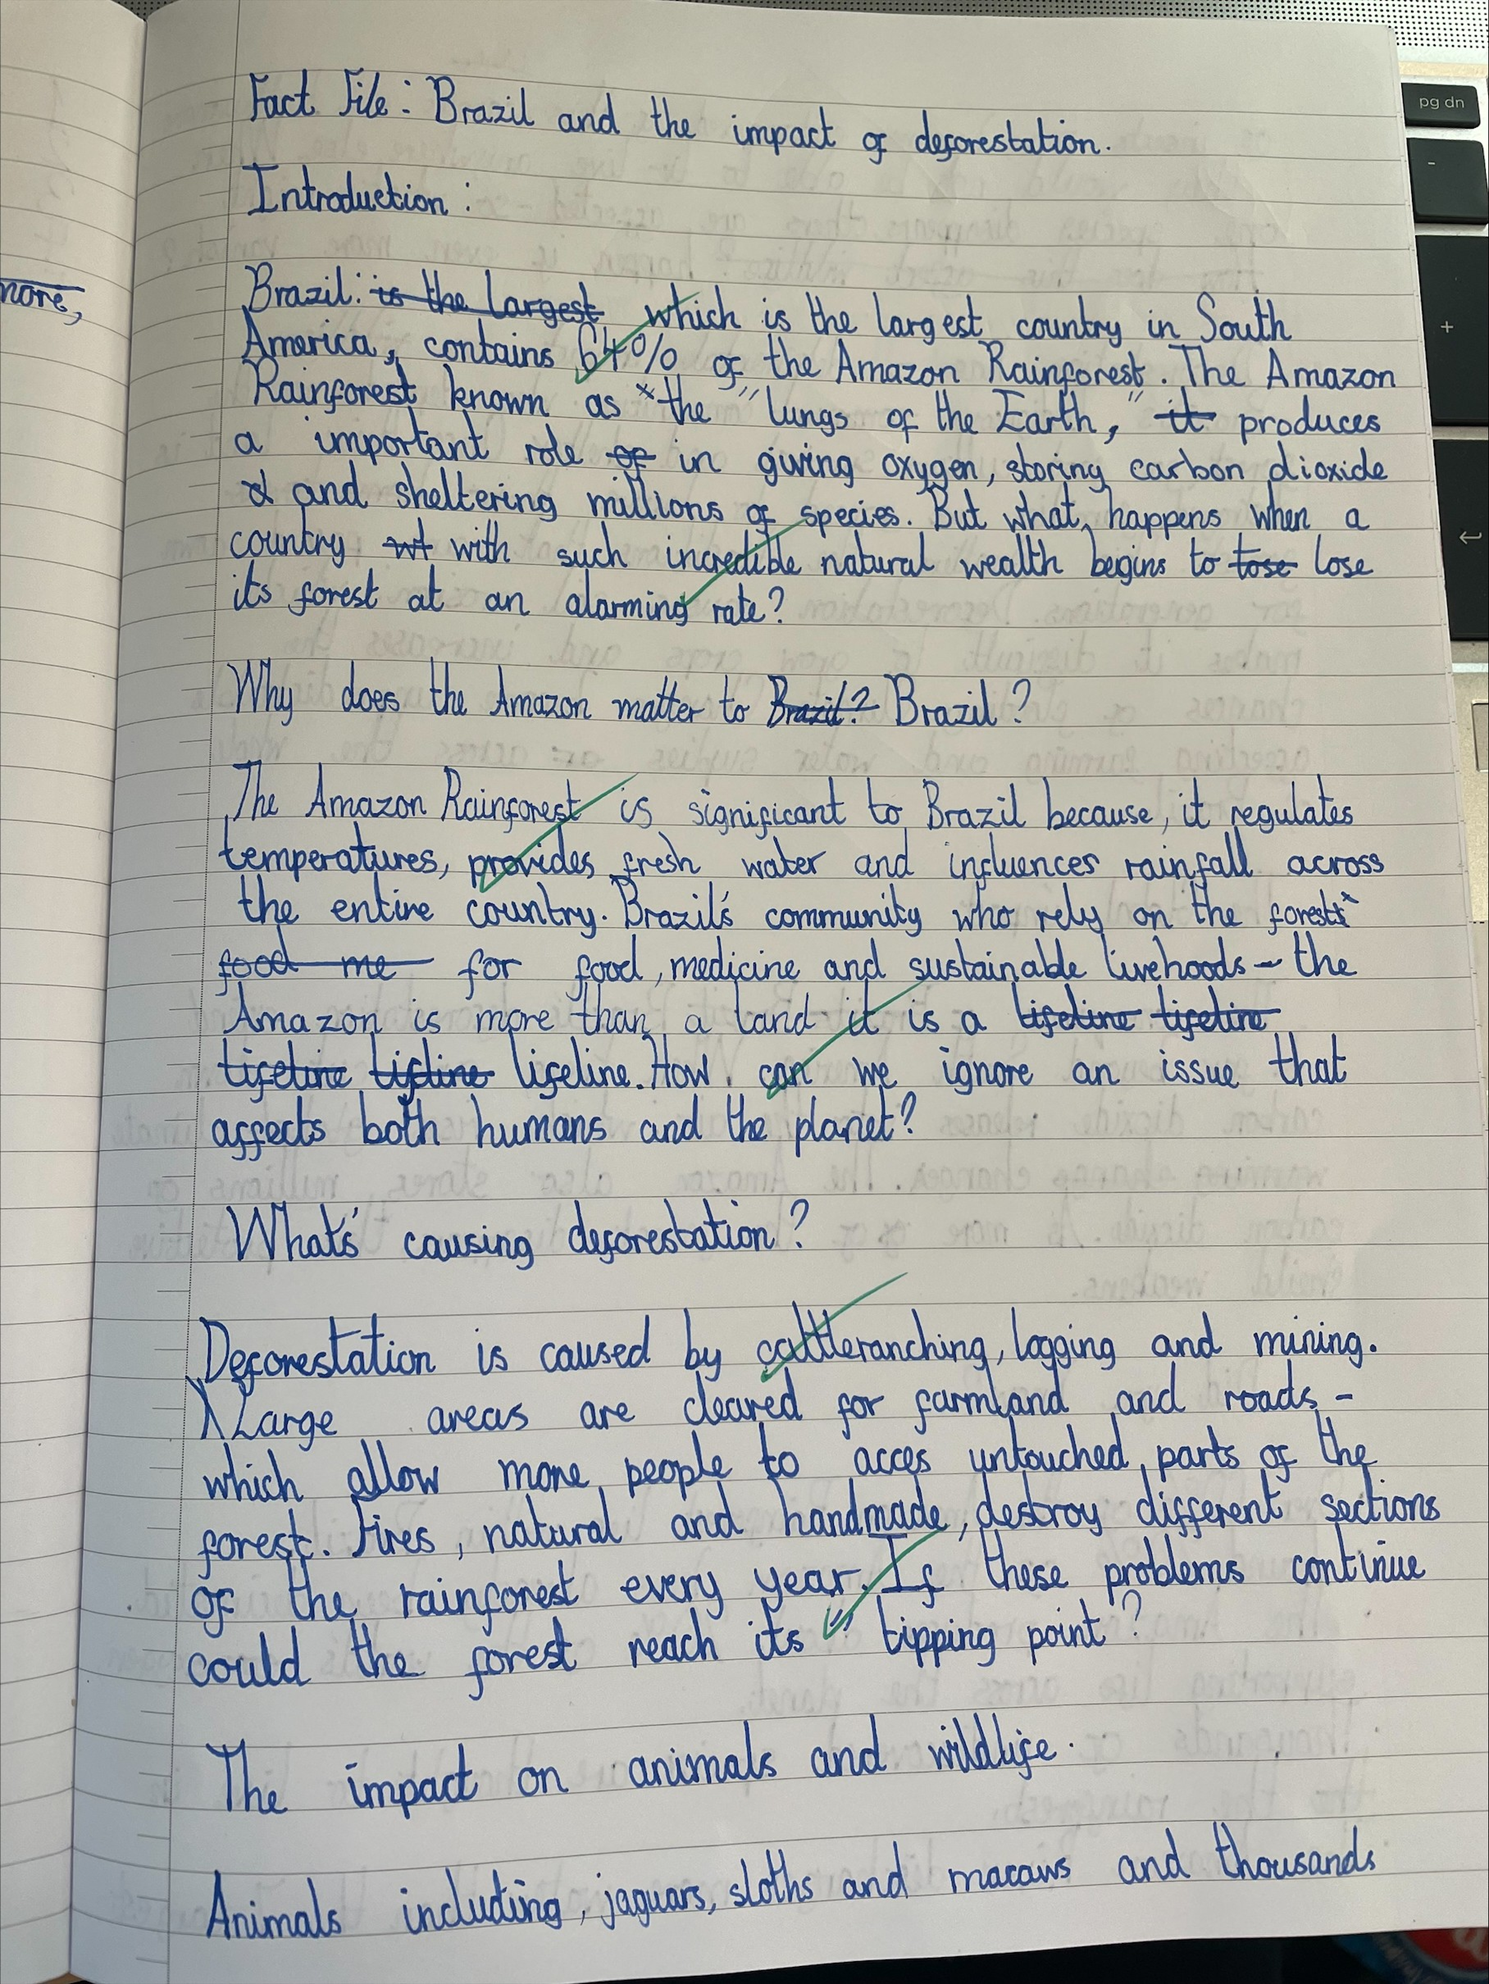 pg dn
-
+
more,
Fact File: Brazil and the impact of deforestation.
Introduction:
Brazil: is the largest which is the largest country in South
America, contains 64% of the Amazon Rainforest. The Amazon
Rainforest known as "the "lungs of the Earth," it produces
a important role of in giving oxygen, storing carbon dioxide
and sheltering millions of species. But what, happens when a
country wt with such incredible natural wealth begins to lose lose
its forest at an alarming rate?
Why does the Amazon matter to Brazil? Brazil?
The Amazon Rainforest is significant to Brazil because, it regulates
temperatures, provides fresh water and influences rainfall across
the entire country. Brazil's community who rely on the forests'
food me for food, medicine and sustainable livehoods - the
Amazon is more than a land it is a lifeline lifeline
lifeline lifline lifeline. How can we ignore an issue that
affects both humans and the planet?
What's causing deforestation?
Deforestation is caused by cattleranching, logging and mining.
Large areas are cleared for farmland and roads -
which allow more people to acces untouched parts of the
forest. Fires, natural and handmade, destroy different sections
of the rainforest every year. If these problems continue
could the forest reach its " tipping point"?
The impact on animals and wildlife.
Animals including, jaguars, sloths and macaws and thousands